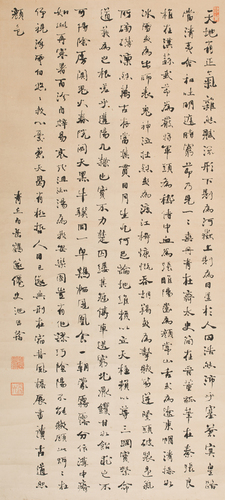 天地有正氣雜然賦流形下則為河嶽上則為日星於人曰浩然沛乎塞蒼冥皇路
當清夷含和吐明庭時窮節乃見一一垂丹青在齊太史簡在晉董狐筆在秦張良
椎在漢蘇武節為嚴將軍頭為嵇侍中血為張睢陽齒為顏常山舌或為遼東帽清操厲
冰雪或為出師表鬼神泣壯烈或為渡江楫慷慨吞胡羯或為擊賊笏逆豎頭破裂是氣
所磅礴凜烈萬古存當其貫日月生死安足論地維賴以立天柱賴以尊三綱實繫命
道義為之根嗟予遘陽九隸也實不力楚囚纓其冠傳車送窮北鼎鑊甘如飴求之不
可得陰房闐鬼火春院閟天黑牛驥同一皁雞棲鳳凰食一朝蒙霧露分作溝中瘠
如此再寒暑百沴自辟易哀哉沮洳場為我安樂國豈有他謬巧陰陽不能賊顧此耿耿在
仰視浮雲白悠悠我心悲蒼天曷有極哲人日已遠典刑在夙昔風簷展書讀古道照
顏色